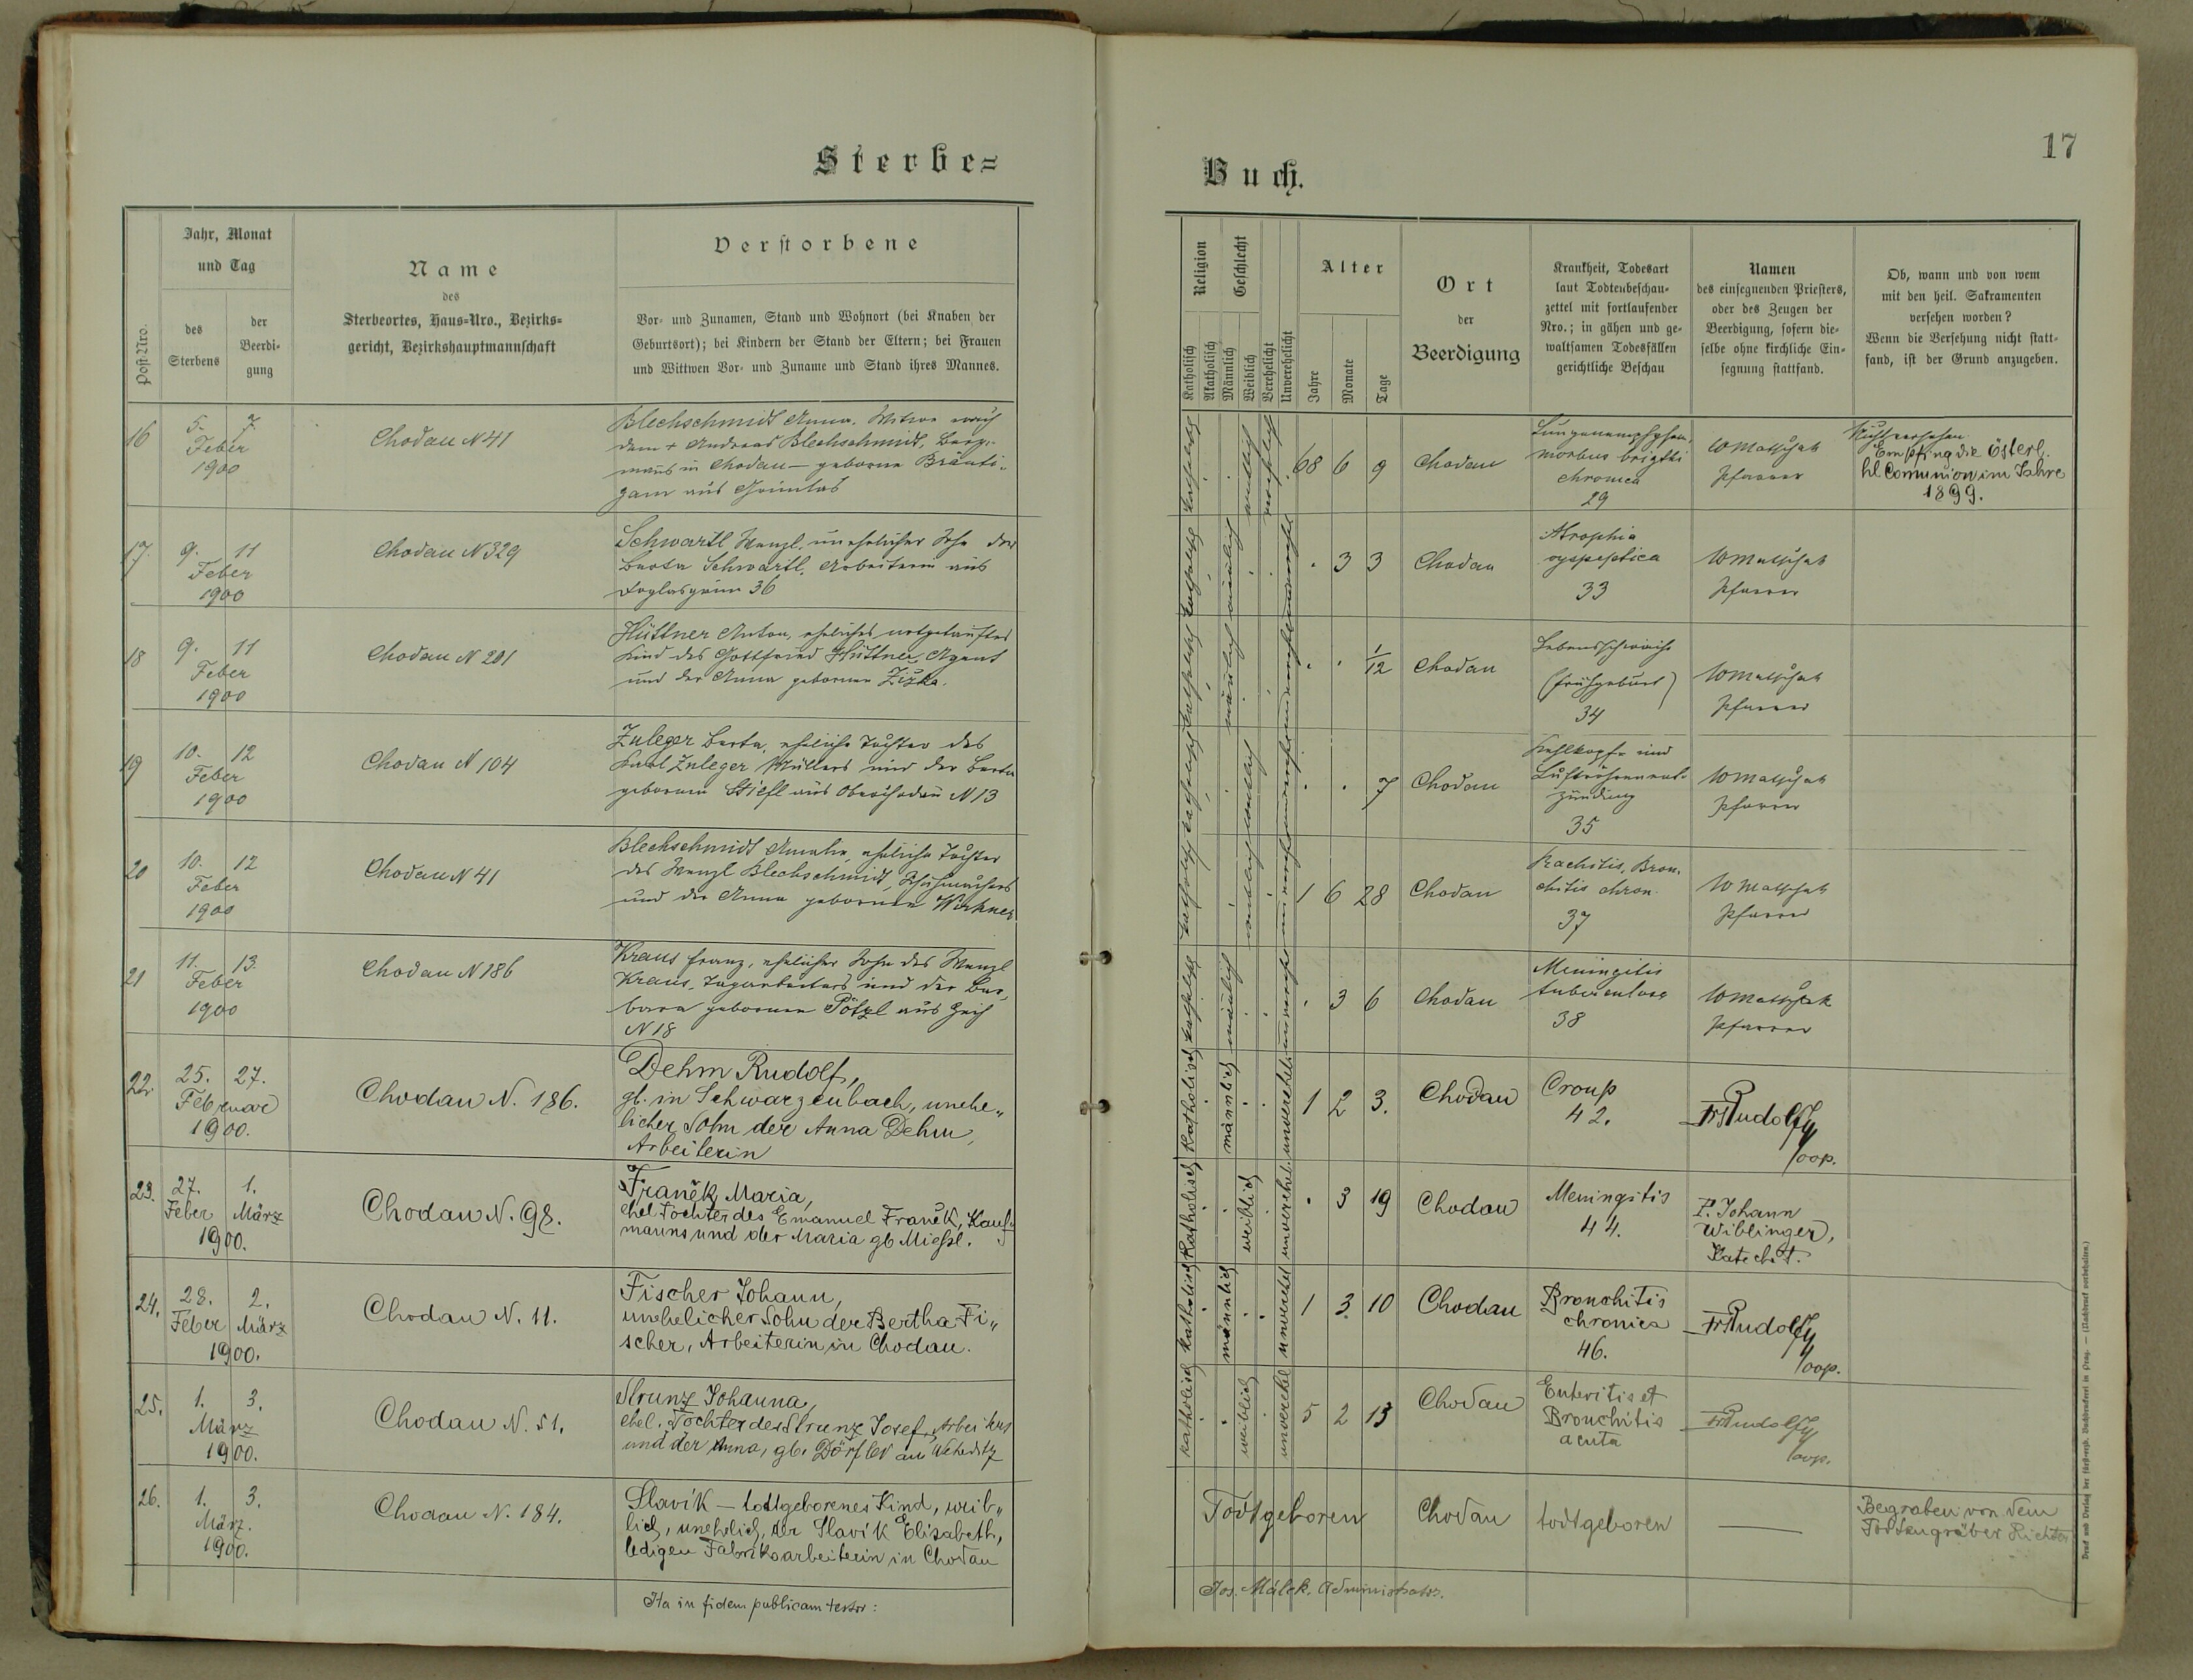 17
Sterbe=
Buch.
Post-Nro.
Jahr, Monat
und Tag
des
Sterbens
der
Beerdi-
gung
Name
des
Sterbeortes, Haus-Nro., Bezirks-
gericht, Bezirkshauptmannschaft
Verstorbene
Vor- und Zunamen, Stand und Wohnort (bei Knaben der
Geburtsort); bei Kindern der Stand der Eltern; bei Frauen
und Wittwen Vor- und Zuname und Stand ihres Mannes.
Religion
Katholisch
Akatholisch
Geschlecht
Männlich
Weiblich
Verehelicht
Unverehelicht
Alter
Jahre
Monate
Tage
Ort
der
Beerdigung
Krankheit, Todesart
laut Todtenbeschau-
zettel mit fortlaufender
Nro.; in gähen und ge-
waltsamen Todesfällen
gerichtliche Beschau
Namen
des einsegnenden Priesters,
oder des Zeugen der
Beerdigung, sofern die-
selbe ohne kirchliche Ein-
segnung stattfand.
Ob, wann und von wem
mit den heil. Sakramenten
versehen worden?
Wenn die Versehung nicht statt-
fand, ist der Grund anzugeben.
16
5. 7.
Feber
1900
Chodau N 41
Blechschmidt Anna, Witwe nach
dem + Andreas Blechschmidt, Berg-
manns in Chodau — geborene Bräuti-
gam aus Grünlas
katholisch
weiblich
verehelicht
68 6 9
Chodau
morbus brigthi
chronica
29
Pfarrer
Nicht versehen
Empfing die österl.
hl Comunion im Jahre
1899.
17.
9. 11
Feber
1900
Chodau N 329
Schwartl Wenzl, unehelicher Sohn der
Berta Schwartl, Arbeiterin aus
Doglasgrün 36
katholisch
männlich
3 3
Chodau
Atrophia
33
Pfarrer
18
9. 11
Feber
1900
Chodau N 201
Hüttner Anton, eheliches notgetauftes
Kind des Gottfried Hüttner, Agent
und der Anna geborenen Žižka.
katholisch
männlich
1/12
Chodau
Lebensschwäche
(Frühgeburt)
34
Pfarrer
19
10. 12
Feber
1900
Chodau N 104
Zuleger Berta, eheliche Tochter des
Karl Zuleger Müllers und der Berta
geborenen Stiefl aus Oberchodau N 13
katholisch
weiblich
7
Chodau
Kehlkopf- und
Luftröhrenent-
zündung
35
Pfarrer
20
10. 12
Feber
1900
Chodau N 41
Blechschmidt Amalie, eheliche Tochter
des Wenzl Blechschmidt, Schuhmachers
und der Anna geborenen
katholisch
weiblich
1 6 28
Chodau
Rachitis, Bron-
chitis chron.
37
Pfarrer
21
11. 13.
Feber
1900
Chodau N 186
Kraus Franz, ehelicher Sohn des Wenzl
Kraus, Tagarbeiters und der Bar-
bara geborenen Pötzl aus
N 18
katholisch
männlich
3 6
Chodau
Meningitis
tuberculosa
38
Pfarrer
22.
25. 27.
Februar
1900.
Chodau N. 186.
Dehm Rudolf,
gb. in Schwarzenbach, unehe„
licher Sohn der Anna Dehm,
Arbeiterin
katholisch
männlich
unverehel.
1 2 3.
Chodau
Croup
42.
Coop.
23.
27. 1.
Feber März
1900.
Chodau N. 98.
Franěk Maria,
ehel Tochter des Emanuel Franěk, Kauf-
manns und der Maria gb Mießl.
katholisch
weiblich
unverehel.
3 19
Chodau
Meningitis
44.
P. Johann
Wiblinger,
Katechet.
24.
28. 2.
Feber März
1900.
Chodau N. 11.
Fischer Johann,
unehelicher Sohn der Bertha Fi„
scher, Arbeiterin in Chodau.
katholisch
männlich
unverehel
1 3 10
Chodau
Bronchitis
chronica
46.
Coop.
25.
1. 3.
März
1900.
Chodau N. 51.
Strunz Johanna,
ehel. Tochter des Strunz Josef, Arbeiters
und der Anna, gb. Dörfler aus Weheditz
katholisch
weiblich
unverehel
5 2 13
Chodau
Enteritis et
Bronchitis
acuta
Coop.
26.
1. 3.
März.
1900.
Chodau N. 184.
Slavík — todtgeborenes Kind, weib„
lich, unehelich, der Slavík Elisabeth,
ledigen Fabriksarbeiterin in Chodau
Todtgeboren
Chodau
todtgeboren
Begraben von dem
Todtengräber Richter
Ita in fidem publicam testor:
Jos. Málek. Administrator.
Druck und Verlag der fürsterzb. Buchdruckerei in Prag. — (Nachdruck vorbehalten.)